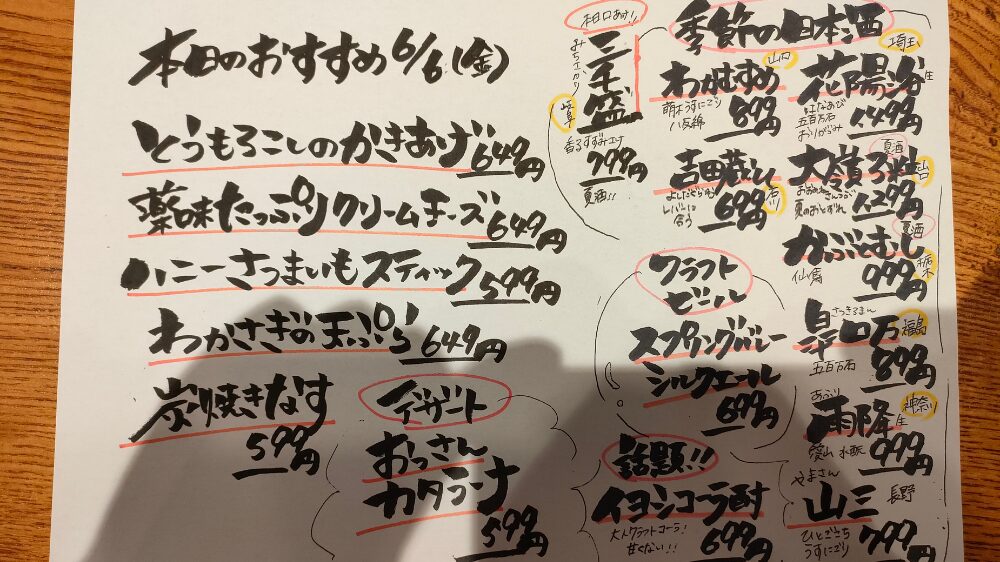 本日のおすすめ 6/6(金)
とうもろこしのかきあげ 649円
薬味たっぷりクリームチーズ 649円
ハニーさつまいもスティック 599円
わかさぎの天ぷら 649円
炭焼きなす
599円
デザート
おっさん
カタラーナ
599円
本日口あけ!!
三千盛
みちさかり
岐阜
香るすずみ
799円
夏酒!!
季節の日本酒
山口
わかむすめ
萌木うすにごり
八反錦
899円
埼玉
花陽浴 生
はなあび
五百万石
おりがらみ
1,499円
吉田蔵u
よしだぐらゆー
石川
699円
夏酒
大嶺3粒
山口
夏のおとずれ
1,299円
夏酒
かぶとむし
仙禽
栃木
999円
さつきろまん
皐ロ万
福島
五百万石
899円
あふり
雨降 生
神奈川
愛山 水酛
999円
やまさん
山三
長野
ひとごこち
うすにごり
799円
クラフト
ビール
スプリングバレー
シルクエール
699円
話題!!
イヨシコーラ酎
大人クラフトコーラ!
甘くない!!
699円